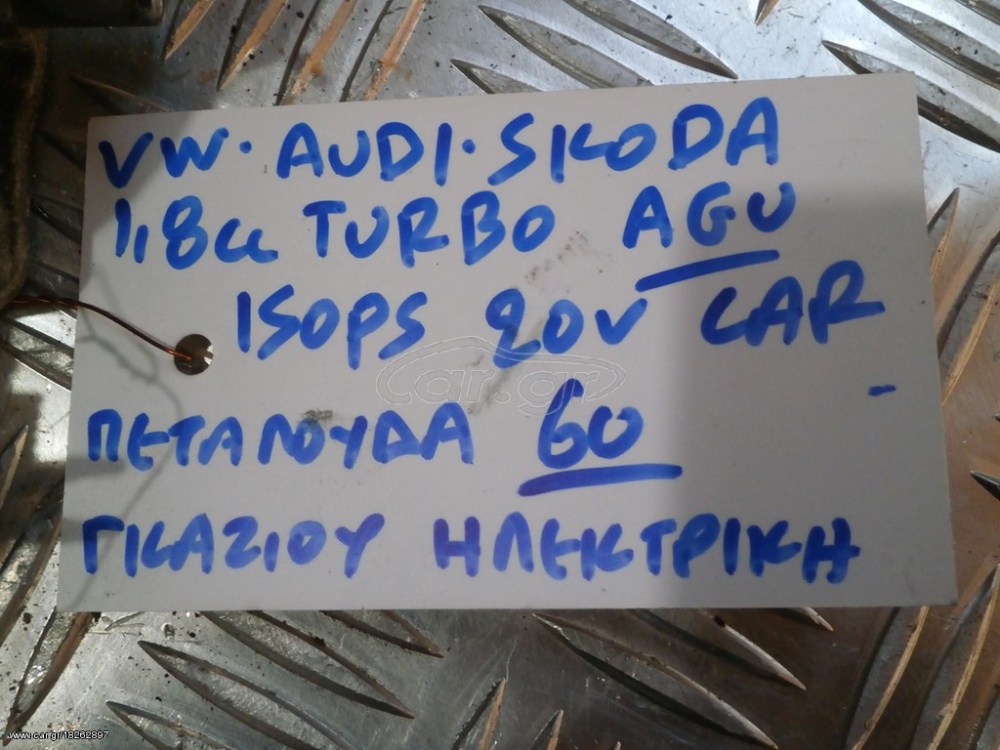 VW· AUDI· SKODA
1,8cc TURBO AGU
150PS 20V CAR
car.gr
ΠΕΤΑΛΟΥΔΑ 60
ΓΚΑΖΙΟΥ ΗΛΕΚΤΡΙΚΗ
www.car.gr/18262897